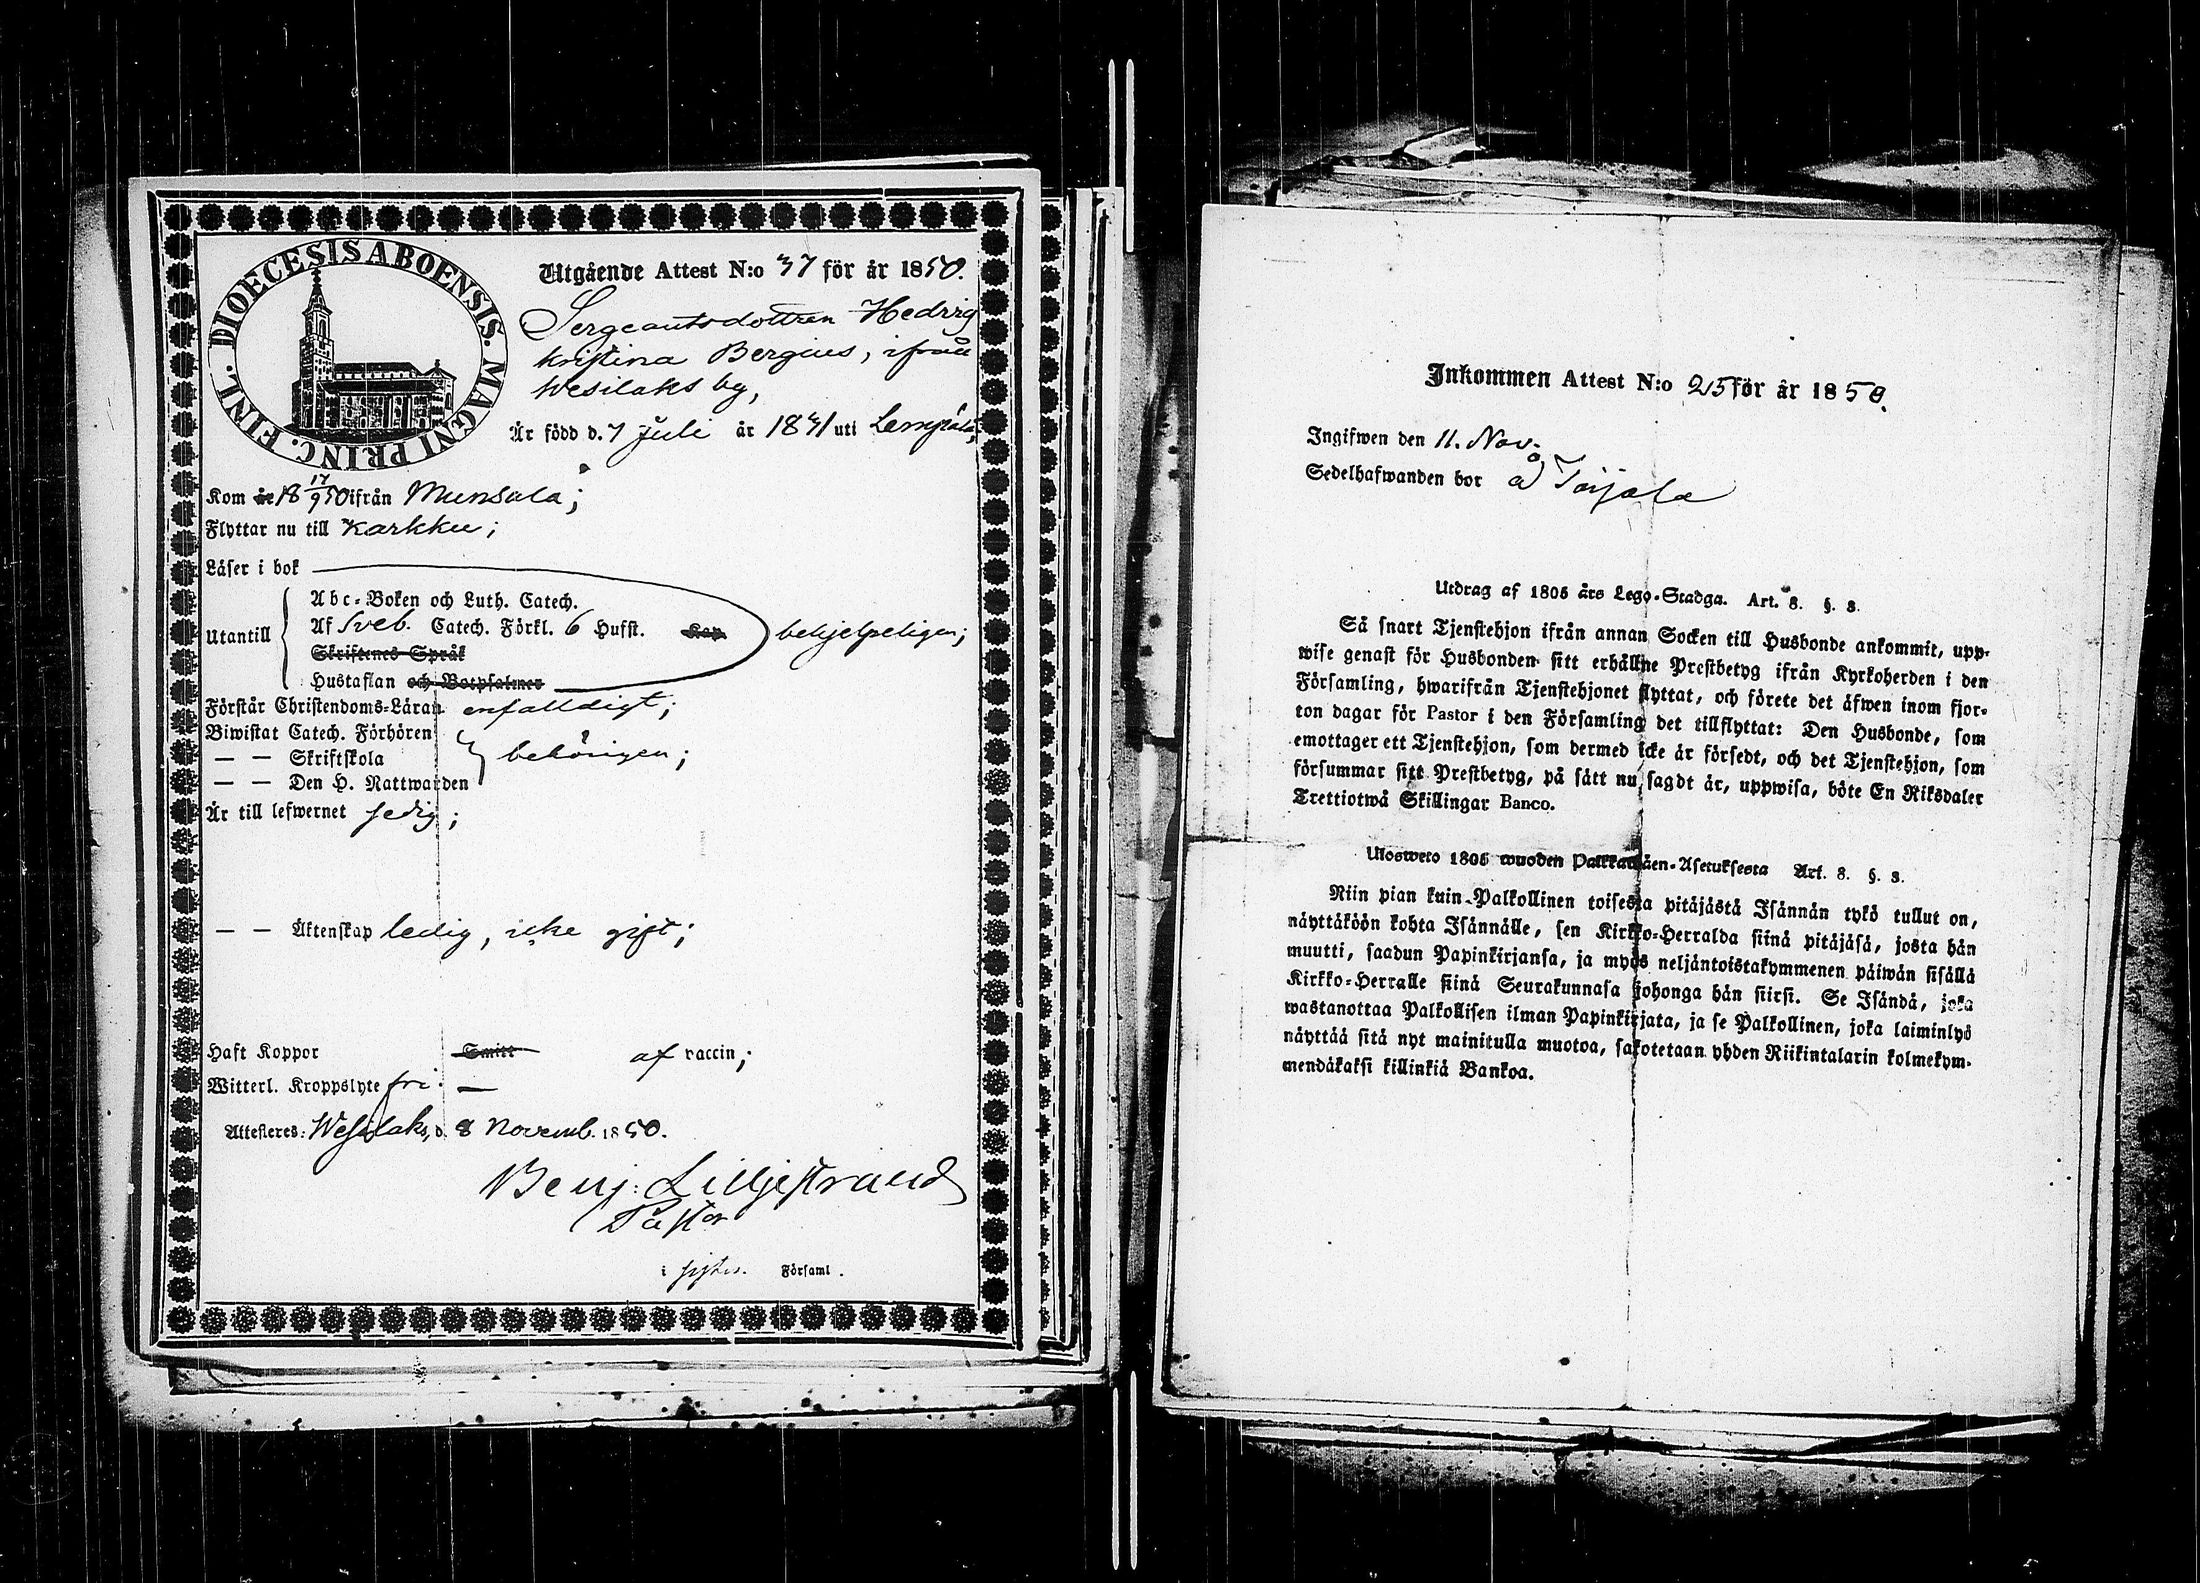 DIOECESIS ABOENSIS. MAGNI PRINC. FINL.
Utgående Attest N:o 37 för år 1850.
Sergeantsdottren Hedvig
Kristina Bergius, ifrån
Wesilaks by,
Är född d. 7 Juli år 1831 uti Lempäla;
Kom år 18 17/9 50 ifrån Munsala;
Flyttar nu till Karkku;
Läser i bok
Abc-Boken och Luth. Catech.
Utantill Af Sveb. Catech. Förkl. 6 Hufst. Kap. behjelpeligen;
Skriftenes Språk
Hustaflan och Botpsalmer
Förstår Christendoms-Läran enfaldigt;
Biwistat Catech. Förhören
— — Skriftskola behörigen;
— — Den H. Nattwarden
Är till lefwernet sedig;
— — Äktenskap ledig, icke gift;
Haft Koppor Smitt af vaccin;
Witterl. Kroppslyte fri. —
Attesteres: Wesilaks, d. 8 Novemb. 1850.
Benj: Lilljestrand
Pastor
i Församl.
Inkommen Attest N:o 25 för år 1850.
Ingifwen den 11. Nov.
Sedelhafwanden bor å
Utdrag af 1805 års Lego-Stadga. Art. 8. §. 3.
Så snart Tjenstehjon ifrån annan Socken till Husbonde ankommit, upp-
wise genast för Husbonden sitt erhållne Prestbetyg ifrån Kyrkoherden i den
Församling, hwarifrån Tjenstehjonet flyttat, och förete det äfwen inom fjor-
ton dagar för Pastor i den Församling det tillflyttat: Den Husbonde, som
emottager ett Tjenstehjon, som dermed icke är försedt, och det Tjenstehjon, som
försummar sitt Prestbetyg, på sätt nu sagdt är, uppwisa, böte En Riksdaler
Trettiotwå Skillingar Banco.
Ulosweto 1805 wuoden Palkkawäen-Asetuksesta Art. 8. §. 3.
Niin pian kuin Palkollinen toisesta pitäjästä Isännän tykö tullut on,
näyttäköön kohta Isännälle, sen Kirkko-Herralda siinä pitäjäsä, josta hän
muutti, saadun Papinkirjansa, ja myös neljäntoistakymmenen päiwän sisällä
Kirkko-Herralle siinä Seurakunnasa johonga hän siirsi. Se Isändä, joka
wastanottaa Palkollisen ilman Papinkirjata, ja se Palkollinen, joka laiminlyö
näyttää sitä nyt mainitulla muotoa, sakotetaan yhden Riikintalarin kolmekym-
mendäkaksi killinkiä Bankoa.